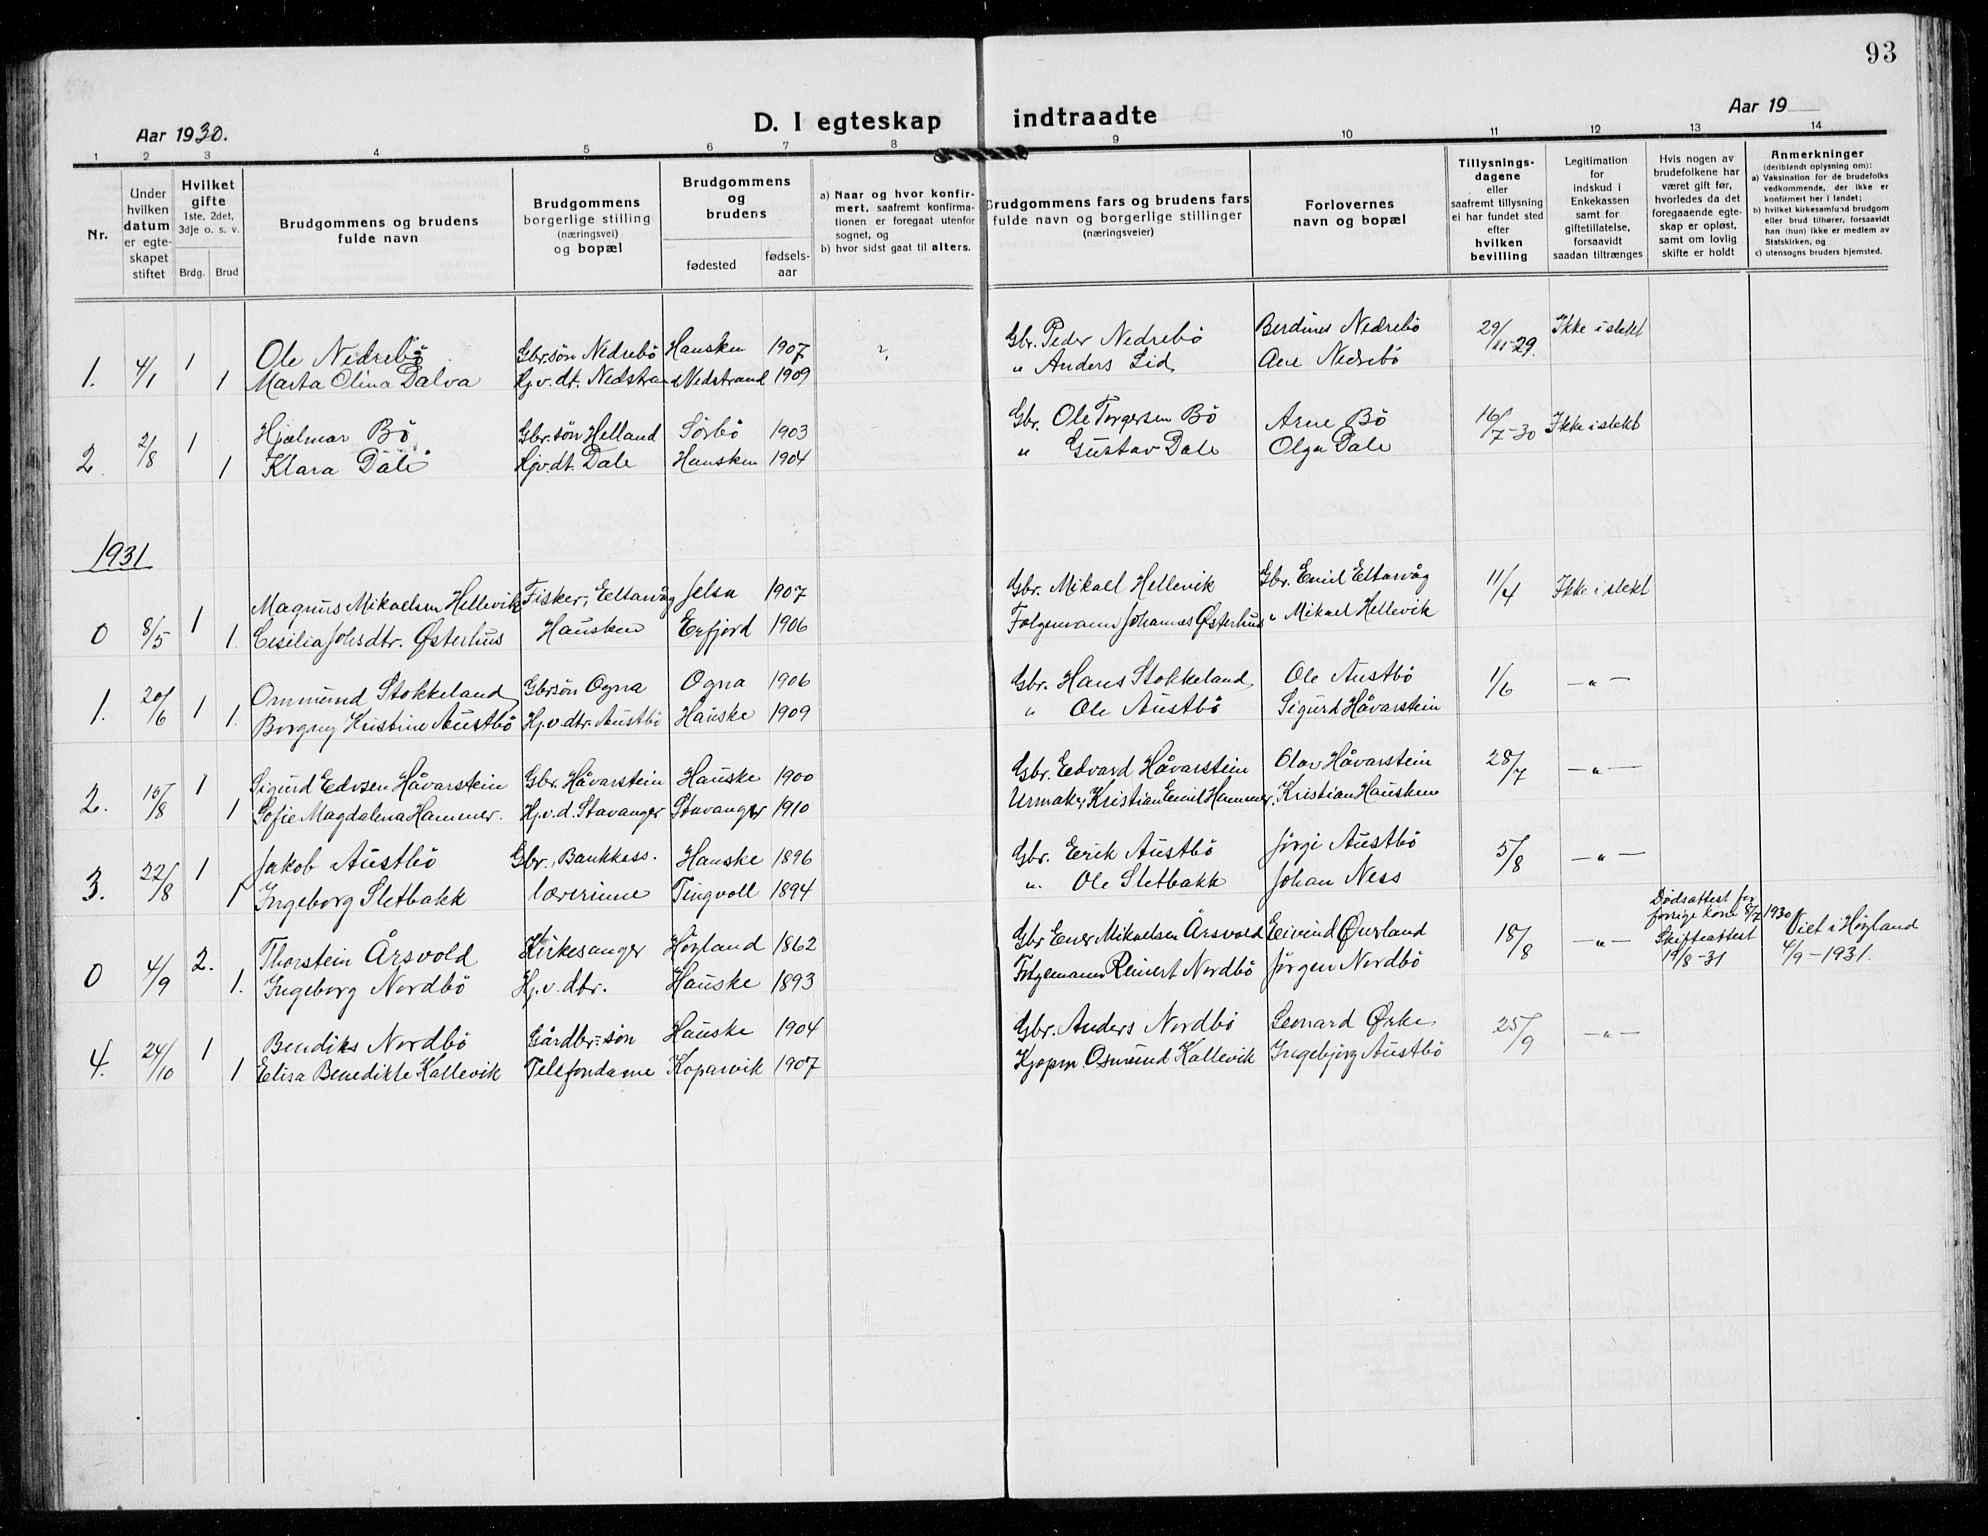 93
Aar 1930.
D. I egteskap indtraadte
Aar 19
1 2 3 4 5 6 7 8 9 10 11 12 13 14
Nr.
Under hvilken datum er egteskapet stiftet
Hvilket gifte 1ste, 2det, 3dje o. s. v.
Brdg. Brud
Brudgommens og brudens fulde navn
Brudgommens borgerlige stilling (næringsvei) og bopæl
Brudgommens og brudens
fødested
fødselsaar
a) Naar og hvor konfirmert, saafremt konfirmationen er foregaat utenfor sognet, og
b) hvor sidst gaat til alters.
Brudgommens fars og brudens fars fulde navn og borgerlige stillinger (næringsveier)
Forlovernes navn og bopæl
Tillysningsdagene eller saafremt tillysning ei har fundet sted efter hvilken bevilling
Legitimation for indskud i Enkekassen samt for giftetillatelse, forsaavidt saadan tiltrænges
Hvis nogen av brudefolkene har været gift før, hvorledes da det foregaaende egteskap er opløst, samt om lovlig skifte er holdt
Anmerkninger (deriblendt oplysning om):
a) Vaksination for de brudefolks vedkommende, der ikke er konfirmert her i landet;
b) hvilket kirkesamfund brudgom eller brud tilhører, forsaavidt han (hun) ikke er medlem av Statskirken, og
c) utensogns bruders hjemsted.
Ole Nedrebö Gbr.søn Nedrebö Hausken 1907 Gbr. Peder Nedrebö Berdines Nedrebö 29/11-29. Ikke i slekt
1. 4/1 1 1 Marta Olina Dalva Hj.v.dt. Nedstrand Nedstrand 1909 " Anders Lid Ane Nedrebö
Hjalmar Bö Gbr.søn Helland Sørbö 1903 Gbr. Ole Torgersen Bö Arne Bö 16/7-30 Ikke i slekt
2. 2/8 1 1 Klara Dale Hjv.dt. Dale Hausken 1904 " Gustav Dale Olga Dale
1931
Magnus Mikaelsen Hellevik Fisker, Eltarvåg Jelsa 1907 Gbr. Mikael Hellevik Gbr. Emil Eltarvåg 11/4 Ikke i slekt
0 8/5 1 1. Cesilia Johsdtr. Østerhus Hausken Erfjord 1906 Folgemann Johannes Østerhus " Mikael Hellevik
Ommund Stokkeland Gbrsön Ogna Ogna 1906 Gbr. Hans Stokkeland Ole Austbö 1/6 — " —
1. 20/6 1 1. Borgny Kristine Austbö Hj.v.dtr. Austbö Hauske 1909 " Ole Austbö Sigurd Håvarstein
Sigurd Edvsen Håvarstein Gbr. Håvarstein Hauske 1900 Gbr. Edvard Håvarstein Olav Håvarstein 28/7 — " —
2. 16/8 1 1 Sofie Magdalena Hammer. Hj.v.d. Stavanger Stavanger 1910 Urmaker Kristian Emil Hammer, Kristian Hausken
Jakob Austbö Gbr., Bankkass. Hauske 1896 Gbr. Eerik Austbö Jörgi Austbö 5/8 — " —
3. 22/8 1 1 Ingeborg Sletbakk lærerinne Tingvoll 1894 " Ole Sletbakk Johan Ness
Thorstein Årsvold Kirkesanger Høyland 1862 Gbr Ener Mikaelsen Årsvold Eivind Øverland 18/8 — " — Dødsattest for forrige kone 8/7 1930 Skifteattest 19/8-31 Viet i Høyland 4/9-1931.
0 4/9 2. 1. Ingeborg Nordbö Hj.v.dtr. Hauske 1893 Folgemann Reinert Nordbö Jörgen Nordbö
Bendiks Nordbö Gårdbr.-sön Hauske 1904 Gbr. Anders Nordbö Leonard Ørke 25/9 — " —
4. 24/10 1 1 Elisa Benedikte Kallevik Telefondame Kopervik 1907 Kjøpm. Osmund Kallevik Ingebjørg Austbö